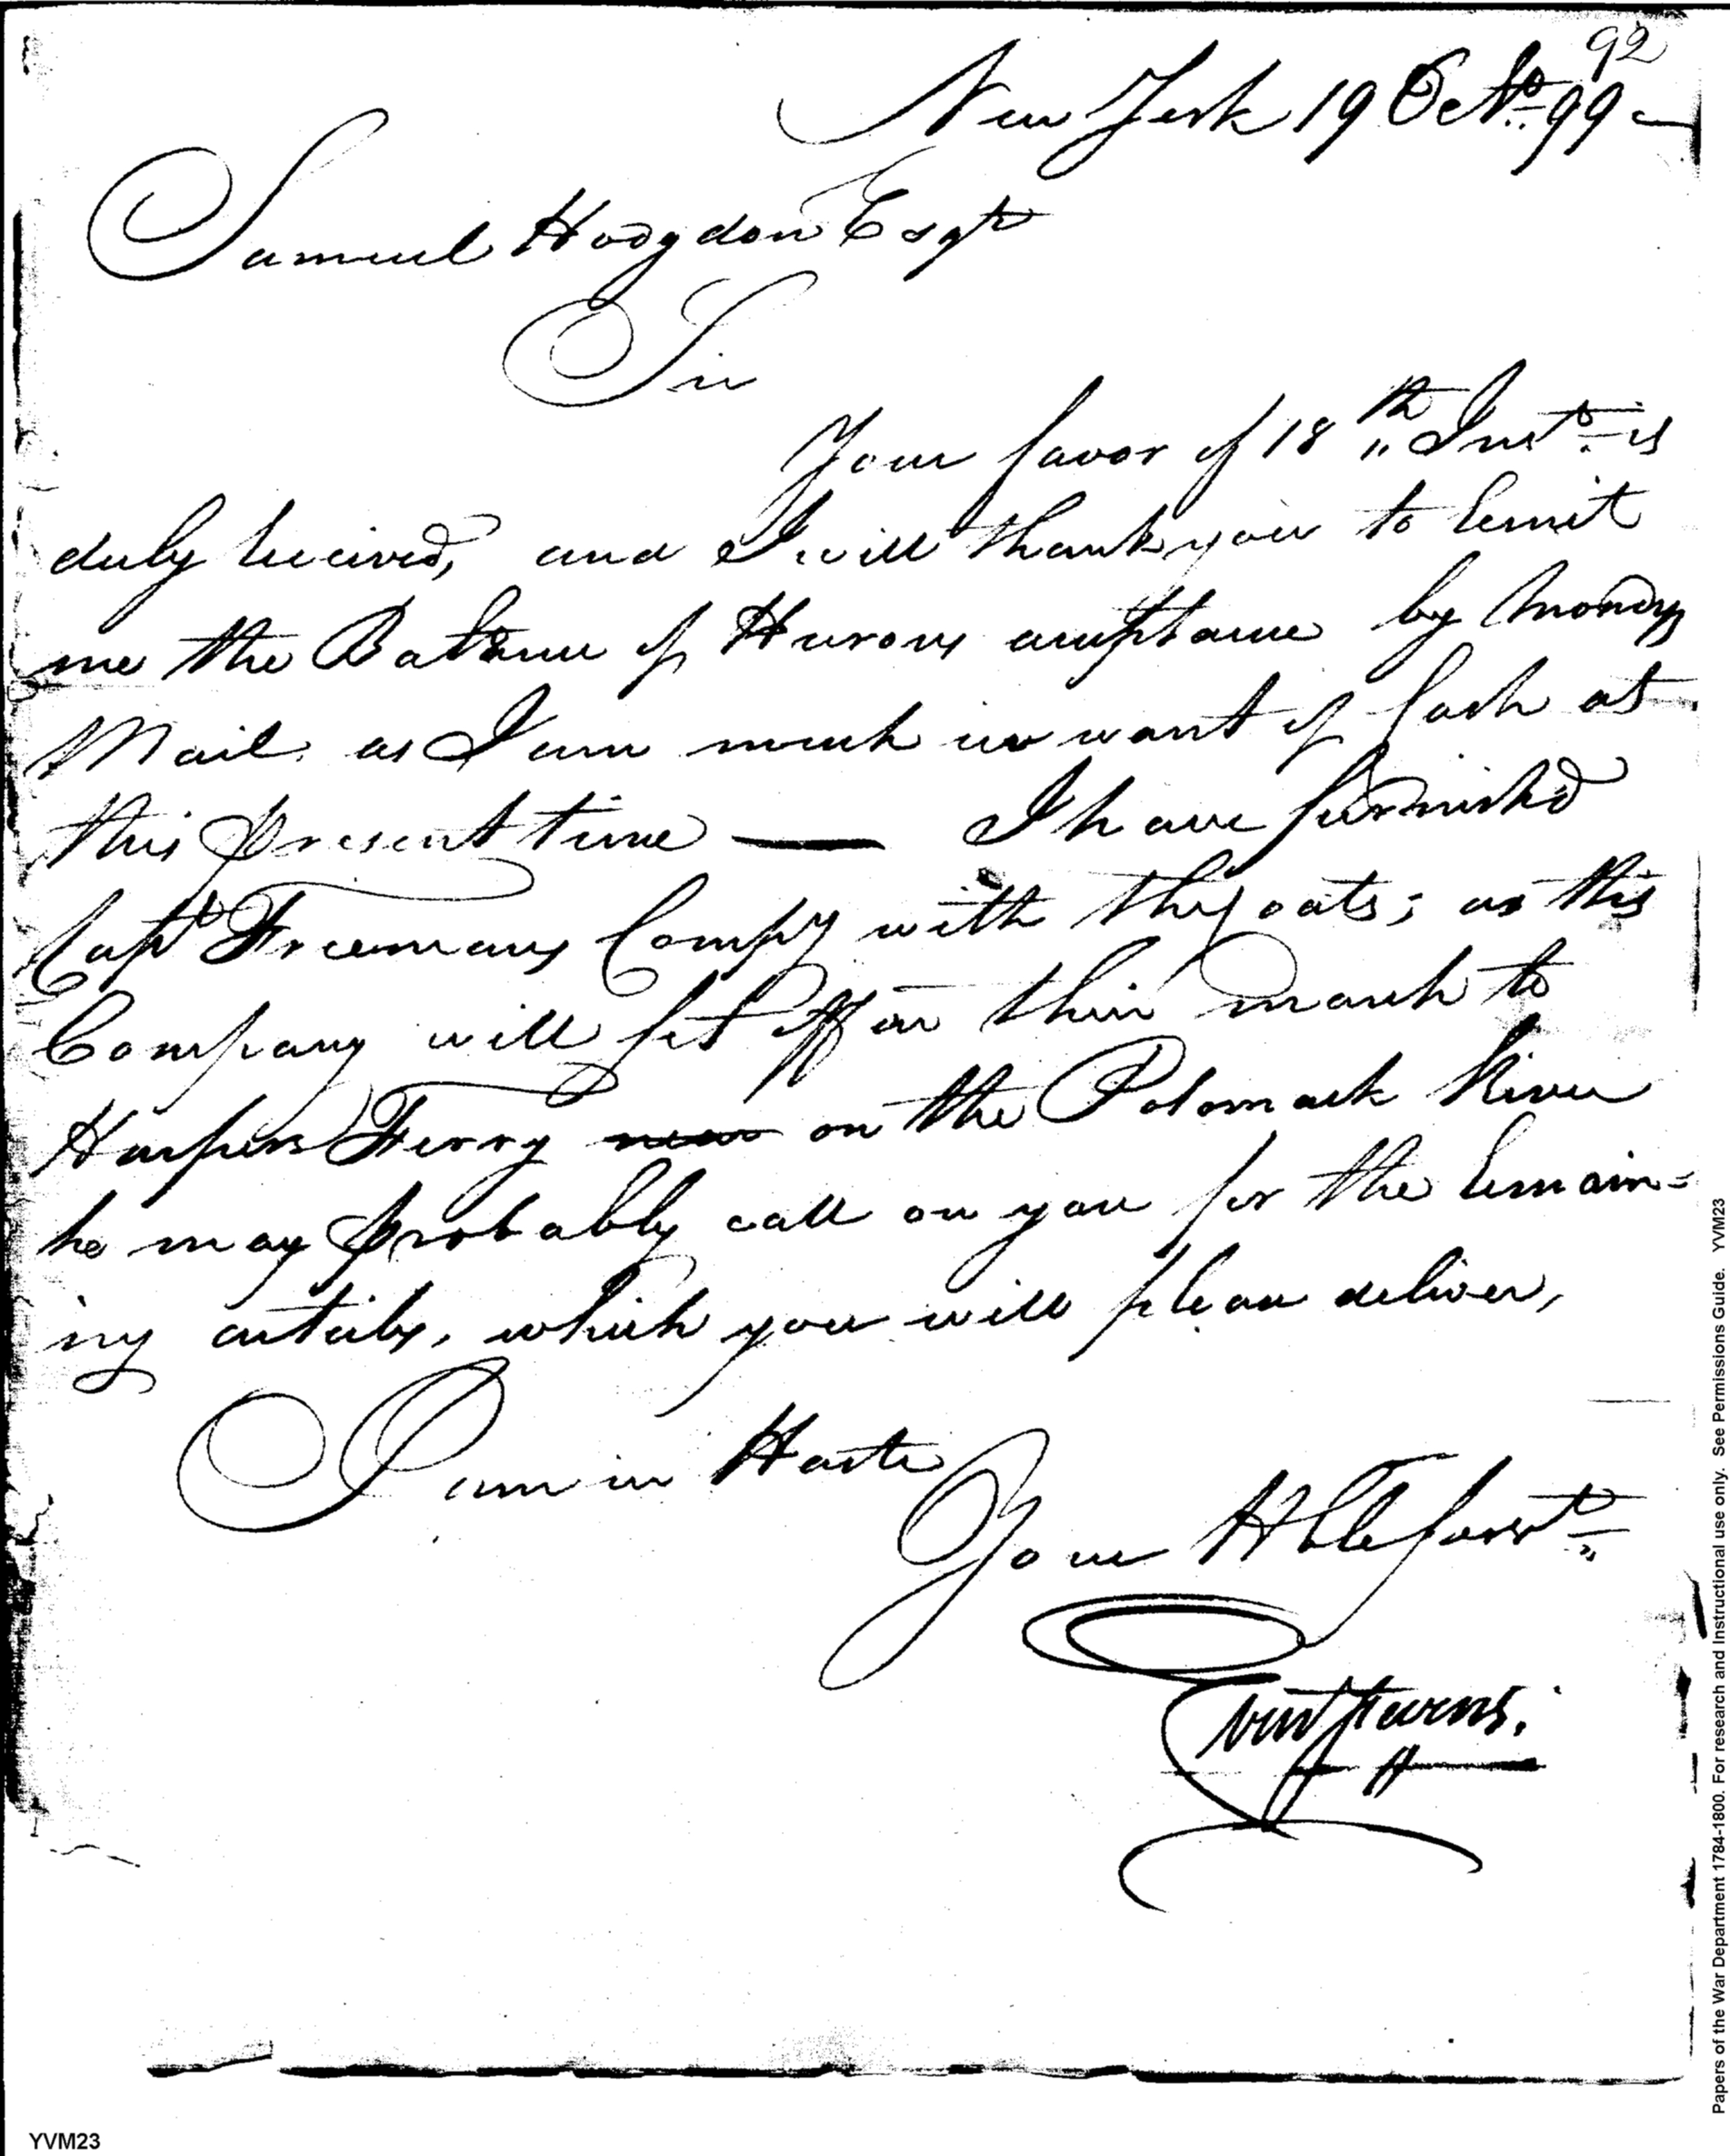 92
New York 19 Octo. 99 —
Samuel Hodgdon Esqr
Sir
Your favor of 18th Inst. is
duly received, and I will thank you to remit
me the Balance of Hurons acceptance by Mondays
Mail as I am much in want of Cash at
this present time — I have furnish'd
Capt Freemans Compy with the coats; as this
Company will set off on their march to
Harpers Ferry near on the Potomack River
he may probably call on you for the remain=
ing articles, which you will please deliver,
I am in Haste
Your Hble servt
YVM23
Papers of the War Department 1784-1800. For research and Instructional use only. See Permissions Guide. YVM23